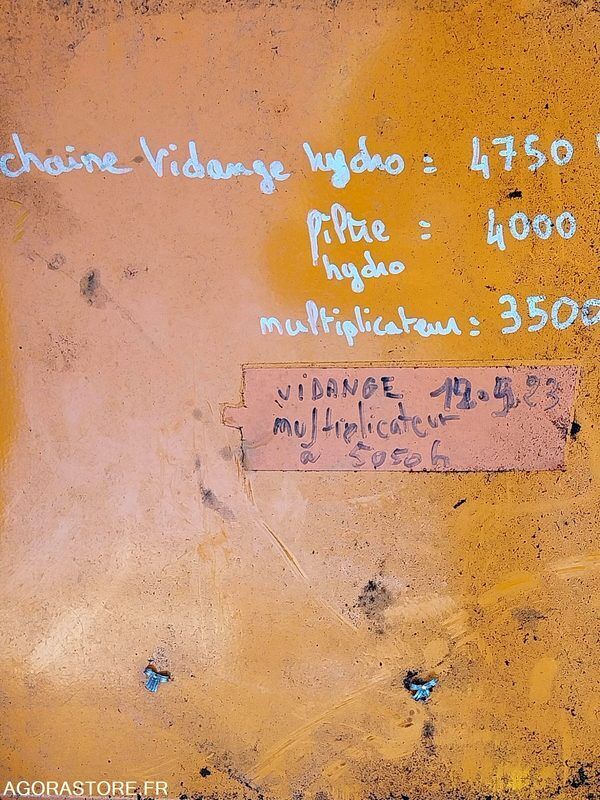 chaine Vidange hydro : 4750
filtre : 4000
hydro
multiplicateur : 3500
VIDANGE 12.9.23
multiplicateur
à 5050h
AGORASTORE.FR